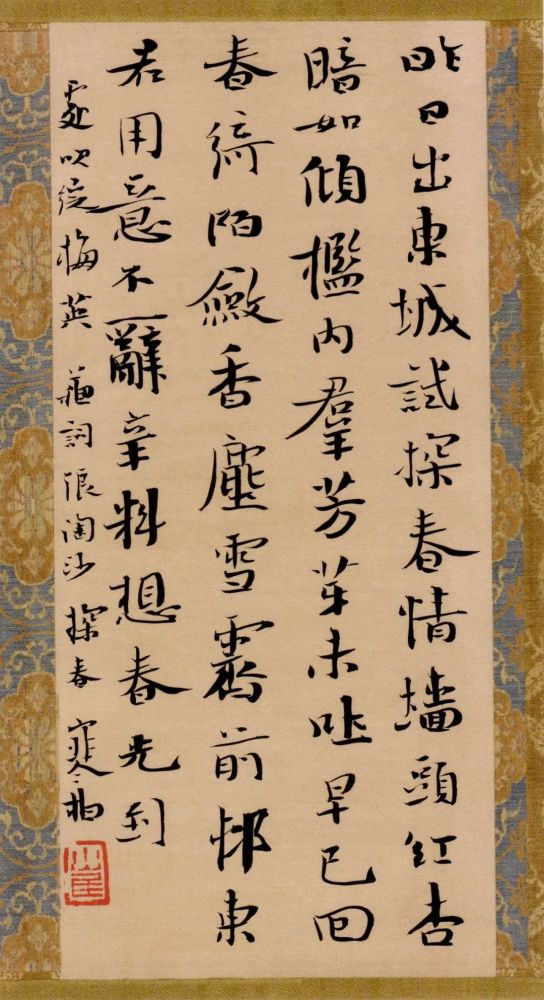 昨日出東城試探春情墻頭紅杏
暗如傾檻內羣芳芽未吐早已囬
春綺陌斂香塵雪霽前邨東
君用意不辭辛料想春先到
處吹綻梅英 蘇詞浪淘沙 探春